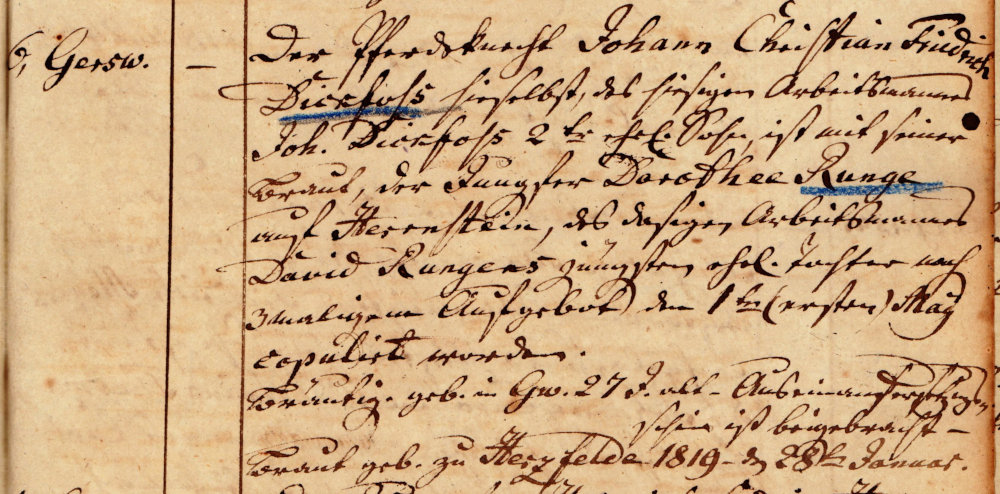 6, Gersw. — Der Pferdeknecht Johann Christian Friedrich
Dickfohs hieselbst, des hiesigen Arbeitsmannes
Joh. Dickfohs 2ter ehel. Sohn, ist mit seiner
Braut, der Jungfer Dorothee Runge
aus Herrnstein, des dasigen Arbeitsmannes
David Rungens jüngsten ehel. Tochter nach
3maligem Aufgebot den 1ten (ersten) May
copulirt worden.
Bräutig. geb. in Gw. 27 J. alt – Auseinandersetzungs-
schein ist beigebracht –
Braut geb. zu Herzfelde 1819 – d 28ten Januar.